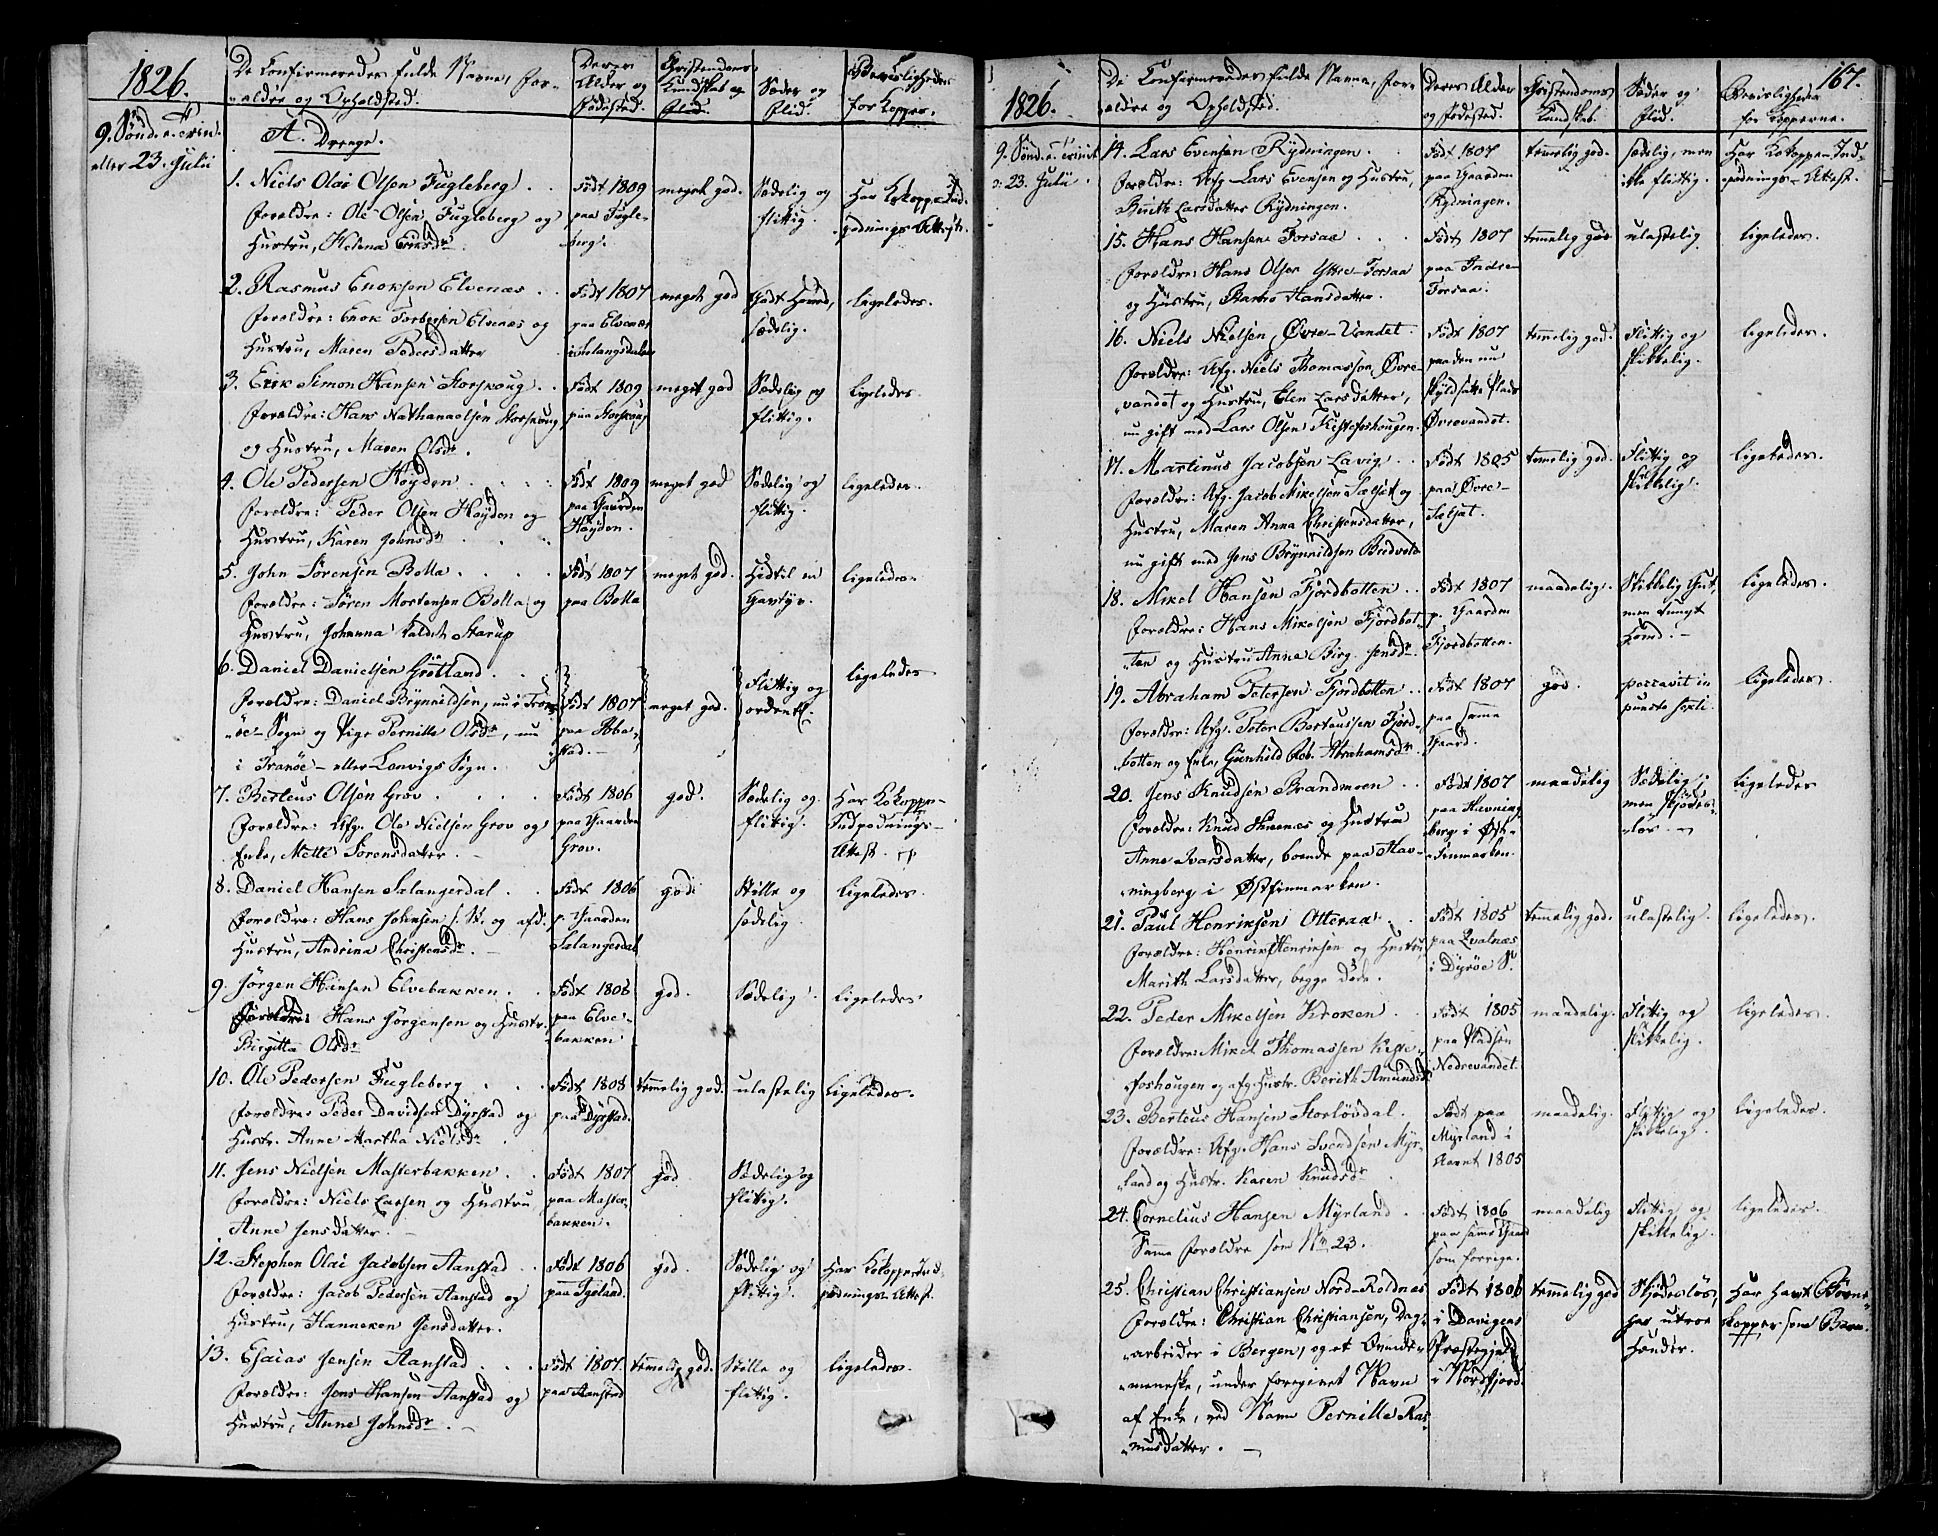 1826.
De Confirmeredes fulde Navne, For-
ældre og Opholdsted.
Deres
Alder og
Fødested.
Christendoms
Kundskab og
Flid.
Sæder og
Flid.
Beviisligheder
for Kopper.
9. Sønd. e. Trin.
eller 23. Julii
A. Drenge.
1. Niels Olai Olsen Fugleberg . .
Forældre: Ole Olsen Fugleberg og
Hustru, Helena Eriksdr.
Født 1809
paa Fugle-
berg.
meget god.
Sædelig og
flittig.
Har Kokoppe-Ind-
podnings Attest.
2. Rasmus Enoksen Elvenæs . .
Forældre: Enok Torbersen Elvenæs og
Hustru, Maren Pedersdatter
Født 1807
paa Elvenæs
i Salangsdalen
meget god
Godt Hoved,
sædelig.
ligeledes.
3. Erik Simon Hansen Storskoug . .
Forældre: Hans Nathanaelsen Storskoug
og Hustru, Maren Olsdr.
Født 1809
paa Storskoug
meget god
Sædelig og
flittig.
ligeledes.
4. Ole Pedersen Høyden . . . .
Forældre: Peder Olsen Høyden og
Hustru, Karen Johnsdr
Født 1809
paa Gaarden
Høyden.
meget god
Sædelig og
flittig.
ligeledes.
5. John Sørensen Bolla . . . .
Forældre: Søren Mortensen Bolla og
Hustru, Johanna kaldet Starup
Født 1807
paa Bolla
meget god.
Hidtil en
Gavtyv.
ligeledes.
6. Daniel Danielsen Grøtland . .
Forældre: Daniel Brynnildsen, nu i Trom-
søe Sogn og Pige Pernille Olsdr, nu
i Tranøe- eller Lenvigs Sogn.
Født 1807
paa Ibbe-
stad.
meget god.
Flittig og
ordentl.
ligeledes
7. Berteus Olsen Grov . . . .
Forældre: Afg. Ole Nielsen Grov og
Enke, Mette Sørensdatter.
Født 1806
paa Gaarden
Grov.
god.
Sædelig og
flittig.
Har Kokoppe-
Indpodnings-
Attest.
8. Daniel Hansen Salangerdal . .
Forældre: Hans Johnsen s. St. og afd.
Hustru, Andrina Christensdr.
Født 1806
p. Gaarden
Salangerdal
god.
Stille og
sædelig
ligeledes.
9. Jørgen Hansen Elvebakken . .
Forældre: Hans Jørgensen og Hustr.
Birgitta Olsdr
Født 1808
paa Elve-
bakken
god.
Sædelig.
ligeledes.
10. Ole Pedersen Fugleberg . . .
Forældre: Peder Davidsen Dyrstad og
Hustr. Anne Martha Nielsdr
Født 1808
paa Dyrstad.
temmelig god.
ulastelig
ligeledes.
11. Jens Nielsen Masterbakken . .
Forældre: Niels Larsen og Hustru
Anne Jensdatter.
Født 1807
paa Master-
bakken.
god
Sædelig og
flittig.
12. Stephen Olai Jacobsen Aanstad . .
Forældre: Jacob Pedersen Aanstad og
Hustru, Hanneken Jensdatter.
Født 1806
paa Tyeland.
god.
Sædelig og
flittig.
Har Kokoppe-Ind-
podnings-Attest.
13. Esaias Jensen Aanstad . . .
Forældre: Jens Hansen Aanstad og
Hustru, Anne Johnsdr.
Født 1807.
paa Aanstad
temmelig god.
Stille og
flittig.
ligeledes.
167.
1826.
De Confirmeredes fulde Navne, For-
ældre og Opholdsted.
Deres Alder
og Fødested.
Christendoms
Kundskab.
Sæder og
Flid.
Beviisligheder
for Kopperne.
9. Sønd. e. Trinit.
23. Julii.
14. Lars Evensen Rydningen . .
Forældre: Afg. Lars Evensen og Hustru,
Berith Larsdatter Rydningen.
Født 1807
paa Gaarden
Rydningen.
temmelig god.
sædelig, men
ikke flittig.
Har Kokoppe-Ind-
podnings-Attest.
15. Hans Hansen Forsaa . . .
Forældre: Hans Olsen Yttre-Forsaa
og Hustru, Barbro Hansdatter.
Født 1807
paa Indre-
Forsaa.
temmelig god
ulastelig
ligeledes.
16. Niels Nielsen Øvre-Vandet.
Forældre: Afg. Niels Thomasson Øvre-
vandet og Hustru, Elen Larsdatter,
nu gift med Lars Olsen Kistefoshougen.
Født 1807
paa den nu
skyldsatte Plads
Øvrevandet.
temmelig god.
Flittig og
skikkelig.
ligeledes.
17. Martinus Jacobsen Lavig . .
Forældre: Afg. Jacob Mikelsen Sælset og
Hustru, Maren Anna Christensdatter,
nu gift med Jens Brynnildsen Bredvold
Født 1805
paa Øvre-
Sælset.
temmelig god.
Flittig og
skikkelig.
ligeledes.
18. Mikel Hansen Fjordbotten . .
Forældre: Hans Mikelsen Fjordbot-
ten og Hustru Anna Birg. Jensdr.
Født 1807
p. Gaarden
Fjordbotten.
maadelig.
Skikkelig Gut,
men tungt
Hoved.
ligeledes.
19. Abraham Petersen Fjordbotten . .
Forældre: Afg. Peter Berteussen Fjord-
botten og Enke, Gunhild Reb. Abrahamsdr.
Født 1807
paa samme
Gaard.
god.
peccavit in
puncto sexti.
ligeledes.
20. Jens Knudsen Brandmoen . .
Forældre: Knud Hunnæs og Hustru
Anne Ivarsdatter, boende paa Hav-
ningberg i Østfinmarken.
Født 1807
paa Havning-
berg i Øst-
Finmarken.
maadelig
Sædelig,
men skjødes-
løs.
ligeledes
21. Paul Henriksen Otteraa . .
Forældre: Henrik Henriksen og Hustru
Marith Larsdatter, begge døde.
Født 1805
paa Qvalnæs
i Dyrøe S.
temmelig god.
ulastelig.
ligeledes.
22. Peder Mikelsen Kroken . .
Forældre: Mikel Thomassen Kiste-
foshougen og afg. Hustr. Berith Amundsdr
Født 1805
paa Pladsen
Nedrevandet.
maadelig.
Flittig og
skikkelig.
ligeledes.
23. Berteus Hansen Storlødal.
Forældre: Afg. Hans Svendsen Myr-
land og Hustr. Karen Knudsdr
Født paa
Myrland i
Aaret 1805
maadelig.
Flittig og
skikkelig.
ligeledes.
24. Cornelius Hansen Myrland . .
Samme Forældre som No 23.
Født 1806
paa samme Gaard
som forrige.
maadelig
Flittig og
skikkelig.
ligeledes.
25. Christian Christiansen Nord-Roldnæs
Forældre: Christian Christiansen, Dag-
arbeider i Bergen, og et Qvinde-
menneske, under foregivet Navn
af Enke, ved Navn Pernille Ras-
musdatter.
Født 1806
i Davigens
Præstegjæld
i Nordfjord.
temmelig god
Skjødesløs,
har utroe
Hænder.
Har havt Børne-
kopper som Barn.